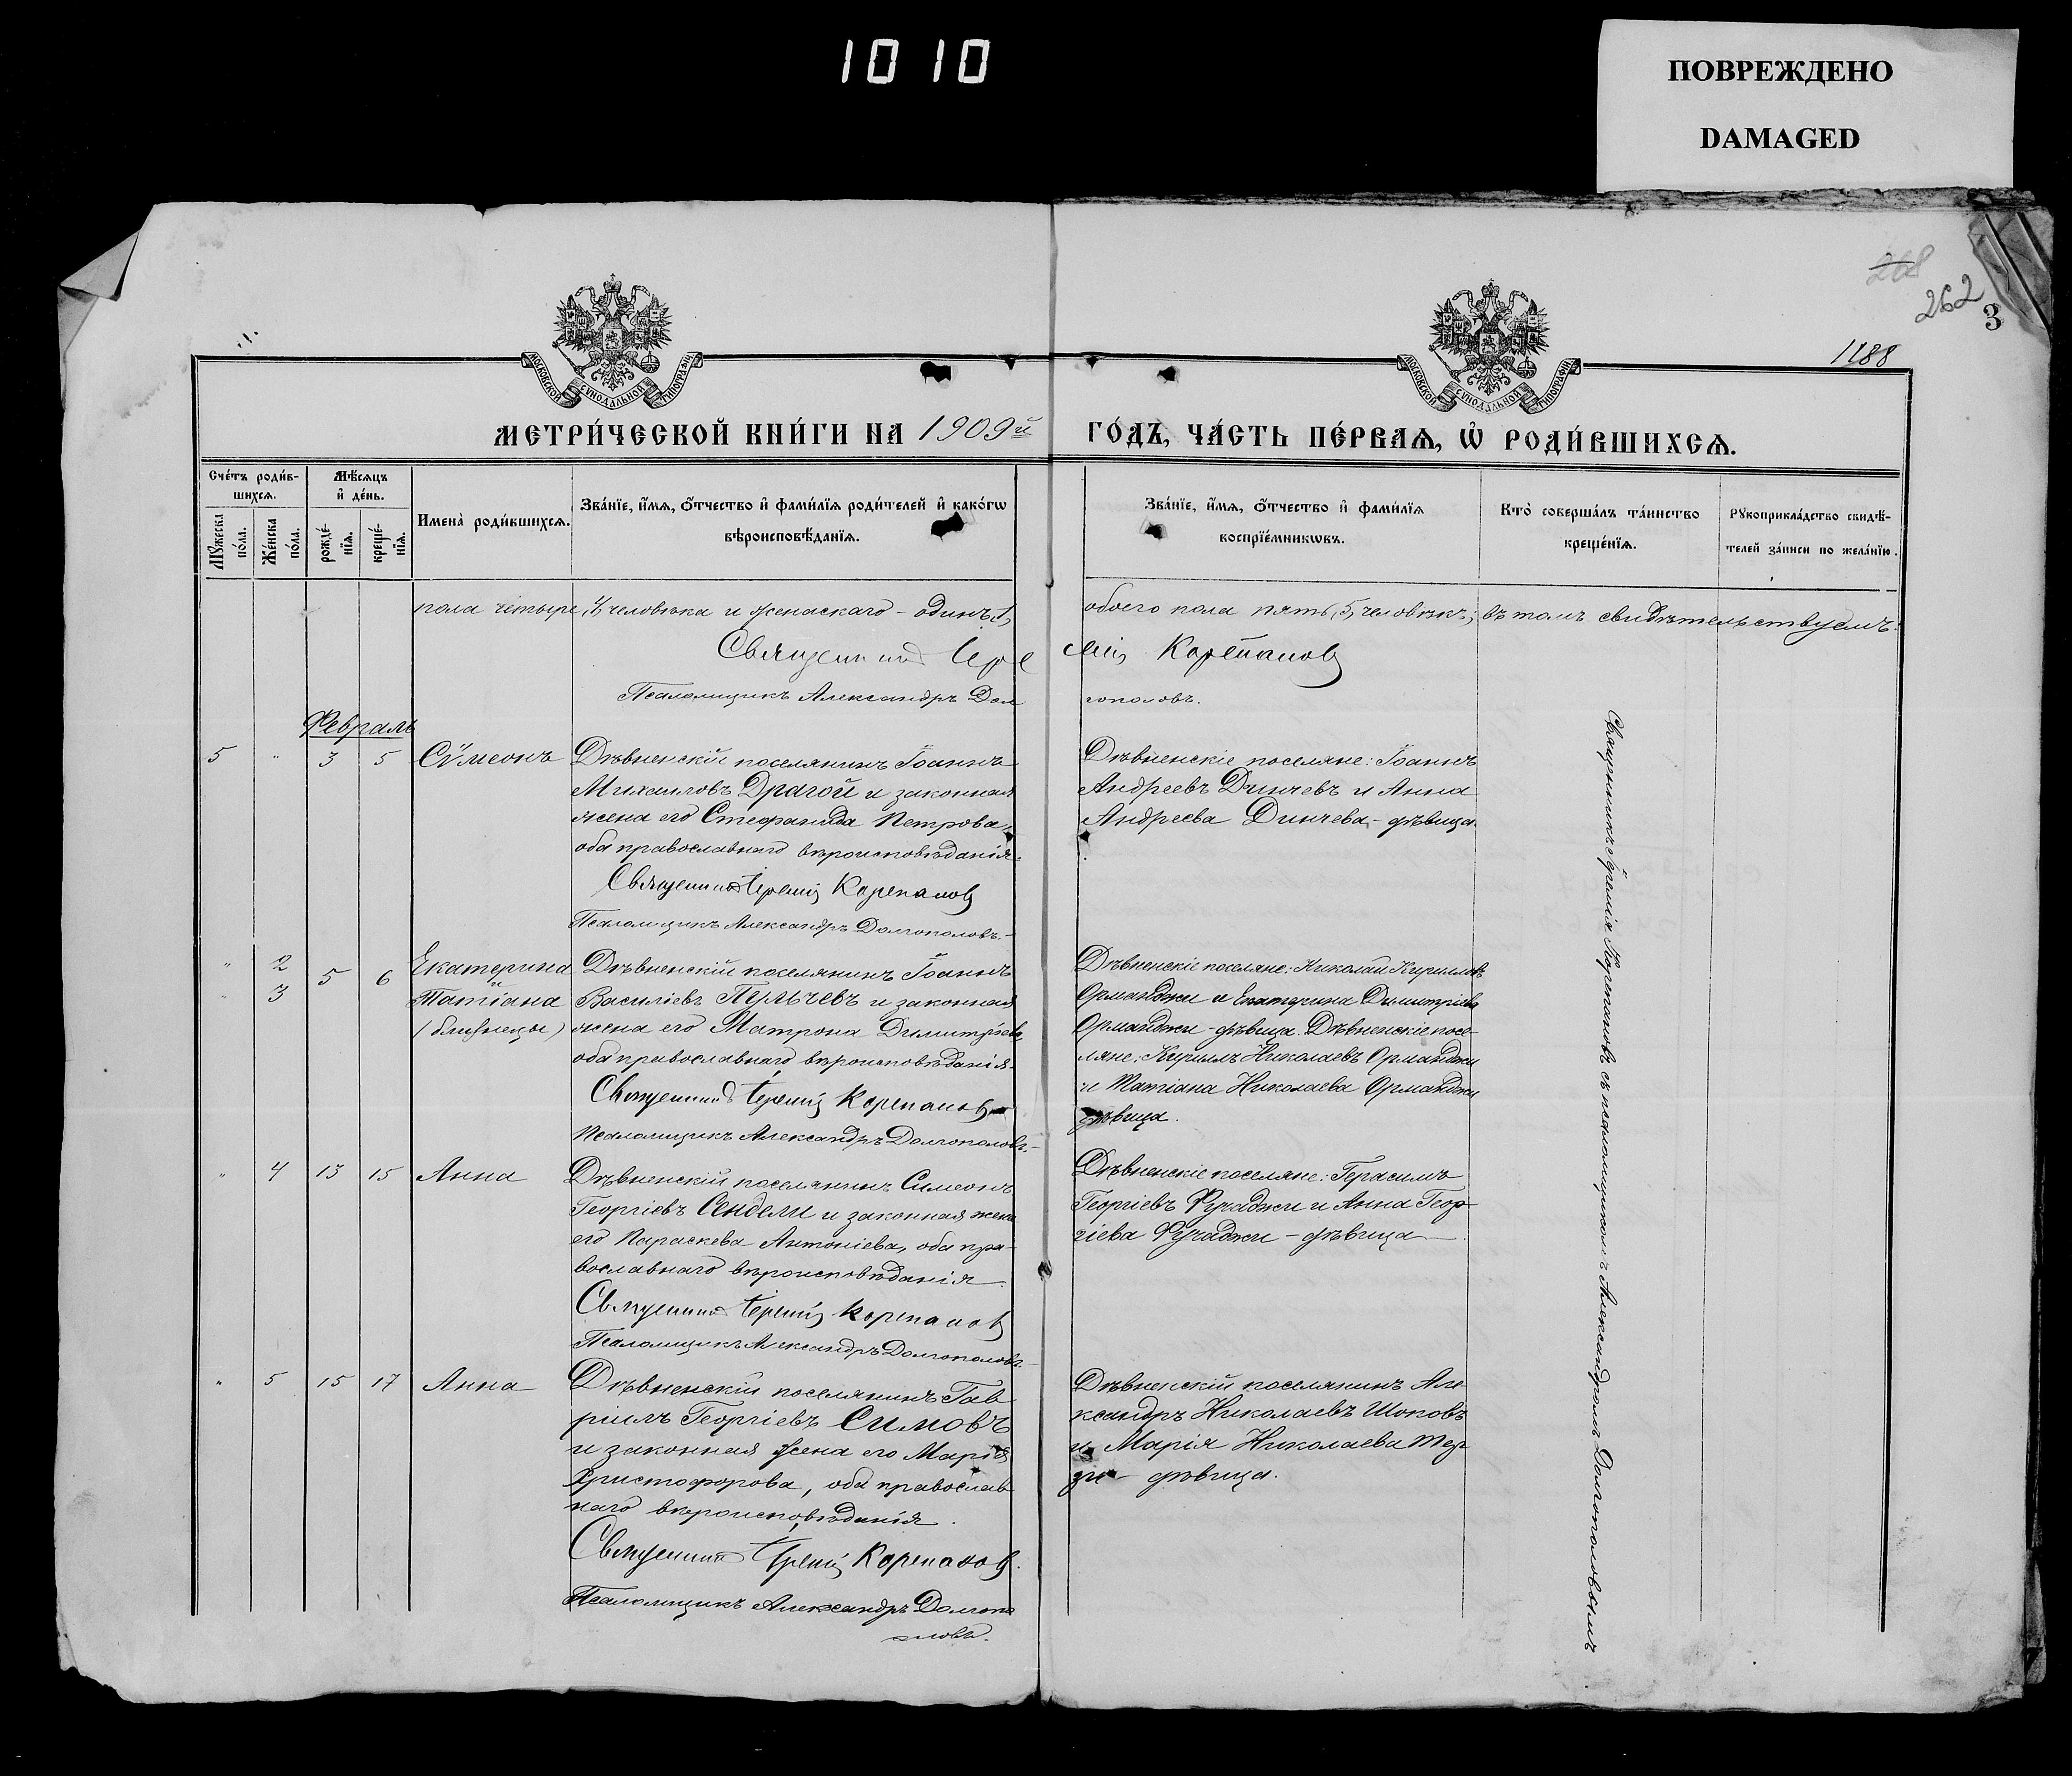 1010
ПОВРЕЖДЕНО
DAMAGED
268
262
3
1188
МОСКОВСКОЙ СУНОДАЛЬНОЙ ТИПОГРАФІИ
МОСКОВСКОЙ СУНОДАЛЬНОЙ ТИПОГРАФІИ
МЕТРИ́ЧЕСКОЙ КНИ́ГИ НА 1909й ГО́ДЪ, ЧА́СТЬ ПЕ́РВАѦ, Ѡ҆ РОДИ́ВШИХСѦ.
Сче́тъ роди́в-
шихсѧ.
Мѣ́сѧцъ
и҆ де́нь.
Мꙋ́жеска
по́ла.
Же́нска
по́ла.
рожде́-
нїѧ.
креще́-
нїѧ.
Имена̀ роди́вшихсѧ.
Зва́нїе, и҆́мѧ, ѻ҆́тчество и҆ фами́лїѧ роди́телей и҆ како́гѡ
вѣроисповѣ́данїѧ.
Зва́нїе, и҆́мѧ, ѻ҆́тчество и҆ фами́лїѧ
воспрїе́мникѡвъ.
Кто̀ соверша́лъ та́инство
креще́нїѧ.
Рꙋкоприкла́дство свидѣ́-
телей за́писи по жела́нїю.
пола четыре, 4, человѣка и женскаго - одинъ, 1,
обоего пола пять, 5, человѣкъ; въ томъ свидѣтельствуемъ:
Священник Іеремія Корепанов
Псаломщикъ Александръ Долгополовъ.
Февраль
5 " 3 5 Сѵмеонъ
Дѣвненскій поселянинъ Іоаннъ
Михаиловъ Драгой и законная
жена его Стефанида Петрова,
оба православнаго вѣроисповѣданія.
Священник Іеремія Корепанов
Псаломщикъ Александръ Долгополовъ.
Дѣвненскіе поселяне: Іоаннъ
Андреевъ Динчевъ и Анна
Андреева Динчева - дѣвица.
" 2 5 6 Екатерина
и
" 3 Татіана
(близнецы)
Дѣвненскій поселянинъ Іоаннъ
Василіевъ Пельчевъ и законная
жена его Матрона Димитріева,
оба православнаго вѣроисповѣданія.
Священник Іеремія Корепанов
Псаломщикъ Александръ Долгополовъ.
Дѣвненскіе поселяне: Николай Кирилловъ
Орманджи и Екатерина Димитріева
Орманджи - дѣвица. Дѣвненскіе посе-
ляне: Кириллъ Николаевъ Орманджи
и Татіана Николаева Орманджи
дѣвица.
" 4 13 15 Анна
Дѣвненскій поселянинъ Симеонъ
Георгіевъ Сендели и законная жена
его Параскева Антоніева, оба пра-
вославнаго вѣроисповѣданія.
Священник Іеремія Корепанов
Псаломщикъ Александръ Долгополовъ.
Дѣвненскіе поселяне: Герасимъ
Георгіевъ Фучаджи и Анна Геор-
гіева Фучаджи - дѣвица
" 5 15 17 Анна
Дѣвненскій поселянинъ Гав-
ріилъ Георгіевъ Симовъ
и законная жена его Марія
Христофорова, оба православ-
наго вѣроисповѣданія.
Священник Іеремія Корепанов.
Псаломщикъ Александръ Долгопо-
ловъ.
Дѣвненскій поселянинъ Але-
ксандръ Николаевъ Шоповъ
и Марія Николаева Тер-
зи - дѣвица.
Священникъ Іеремія Корепановъ съ псаломщикомъ Александромъ Долгополовымъ